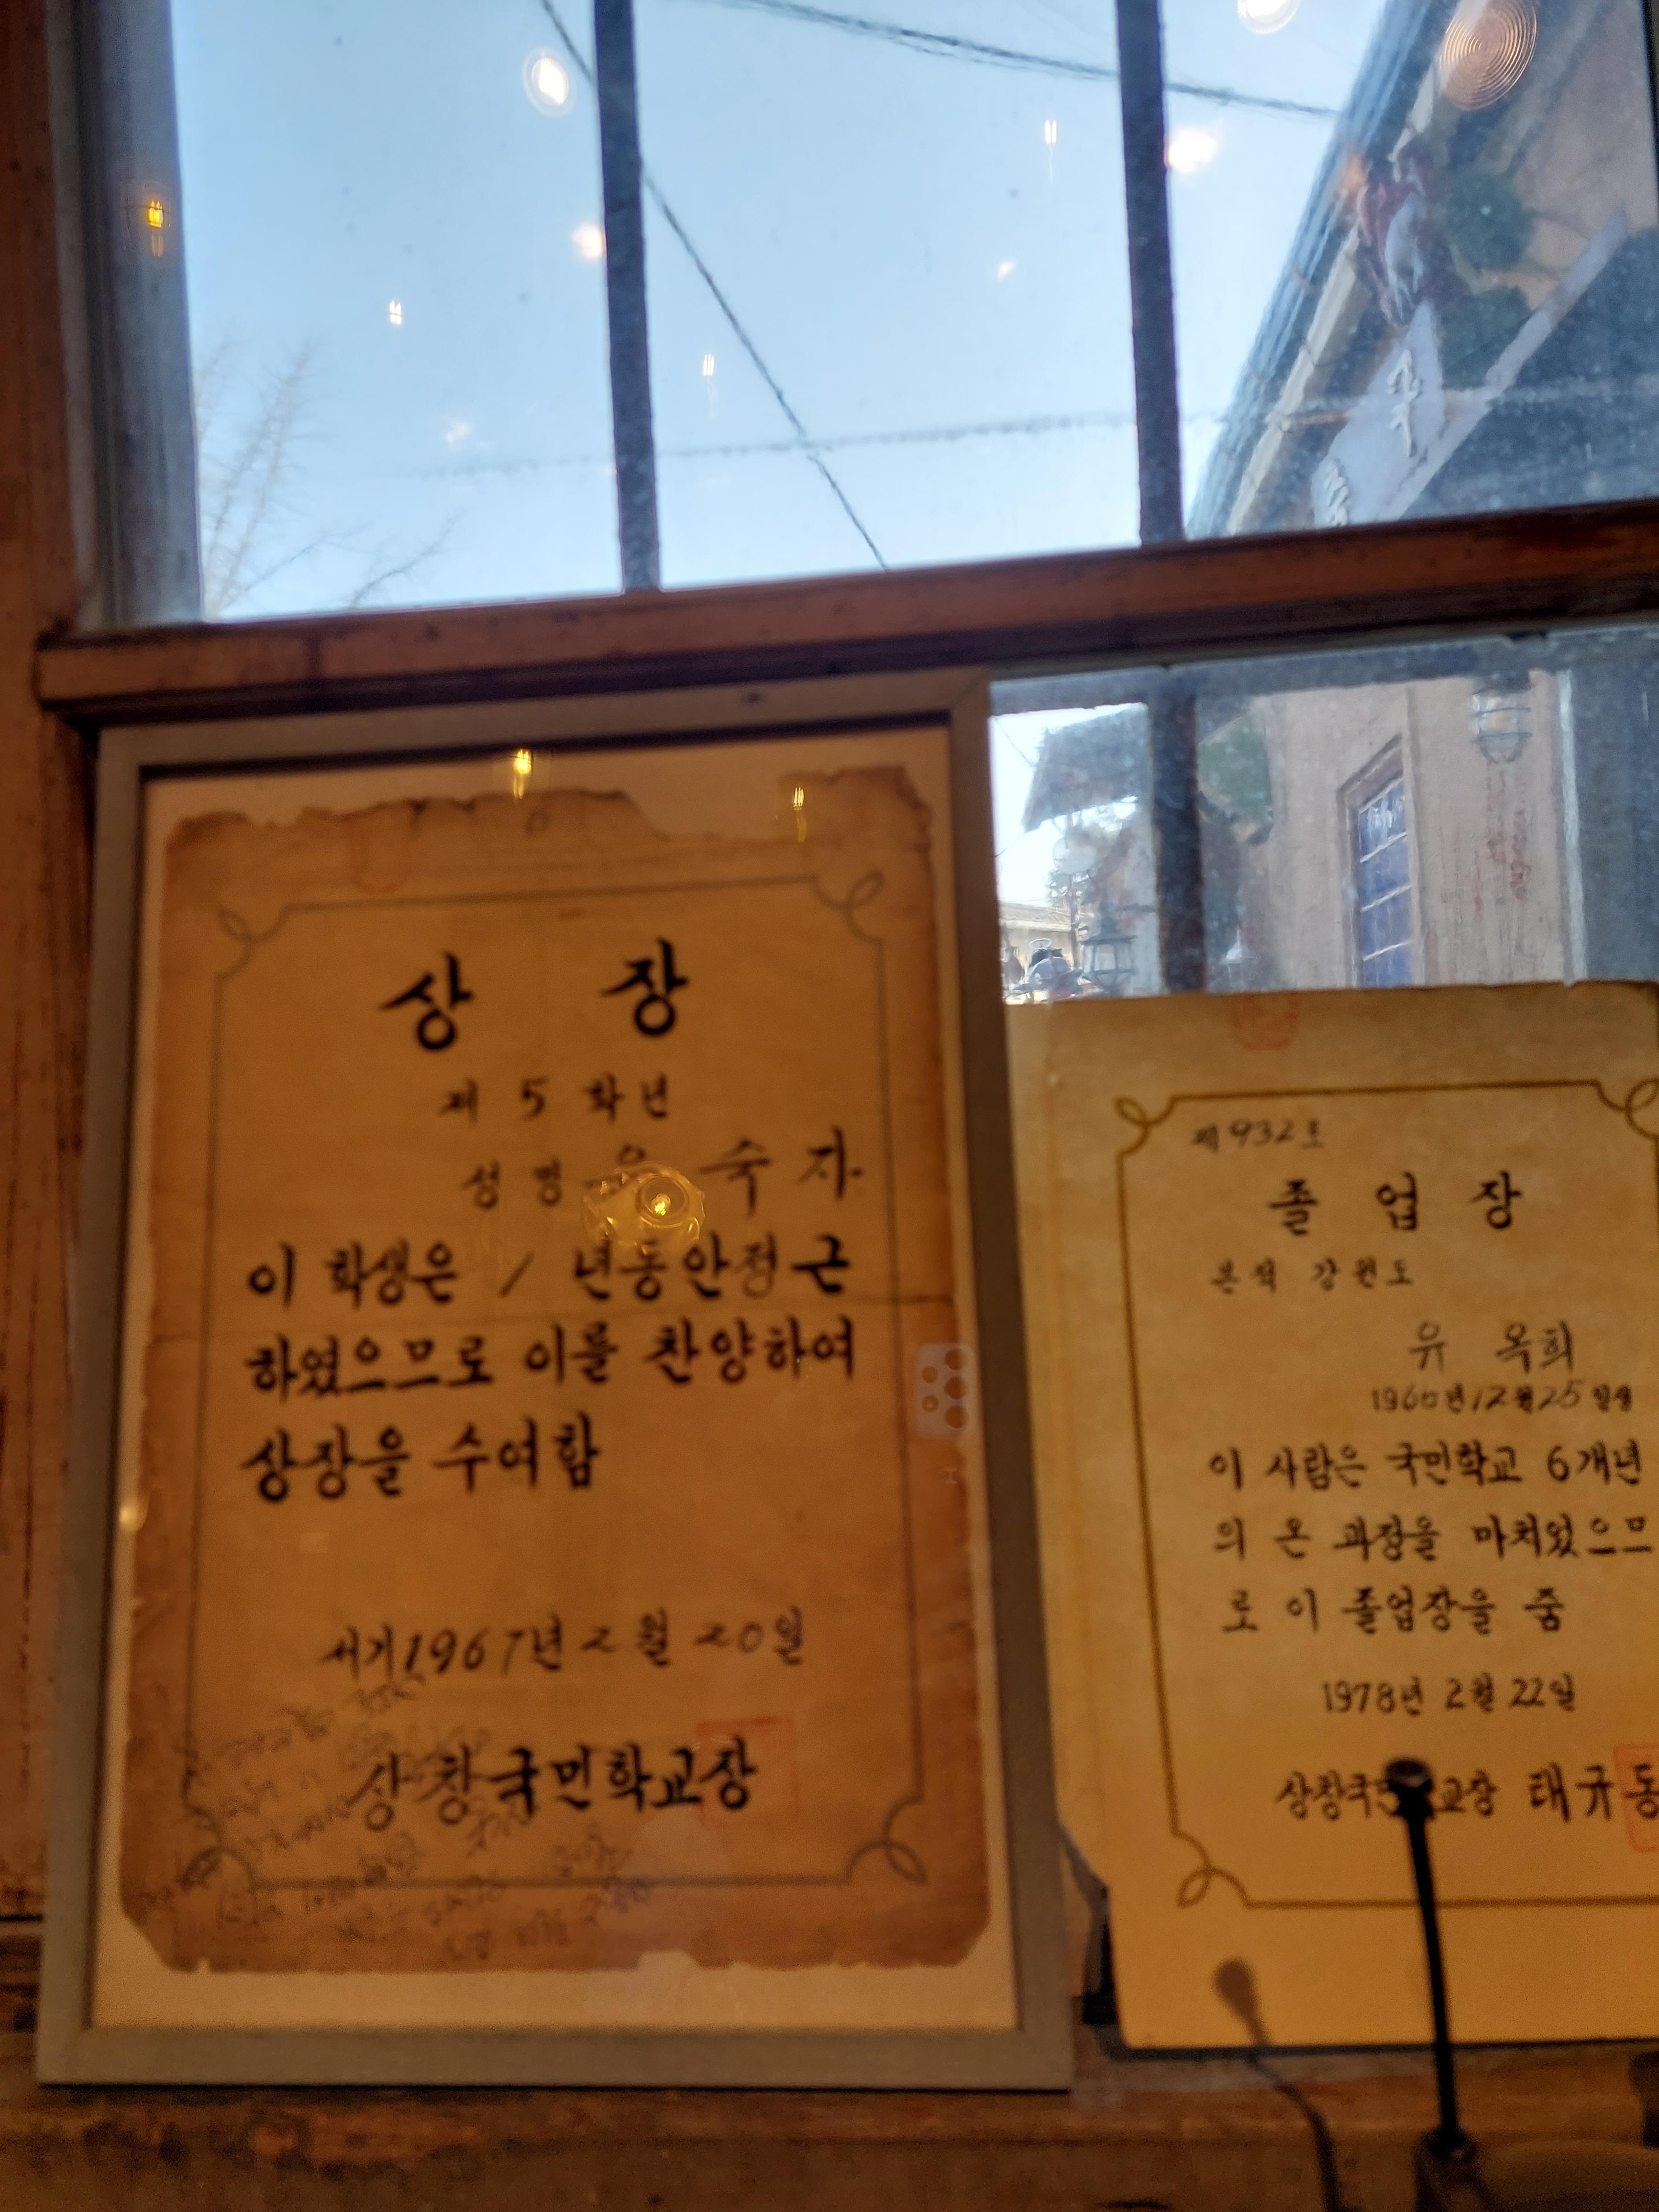 상 장
제 5 학년
성 명 숙 자
이 학생은 1 년동안정근
하였으므로 이를 찬양하여
상장을 수여함
서기1967년 2월 20일
상창국민학교장
제932호
졸 업 장
본적 강원도
유 옥희
1960년12월25일생
이 사람은 국민학교 6개년
의 온 과정을 마치었으므
로 이 졸업장을 줌
1978년 2월 22일
상창국 교장 태규동